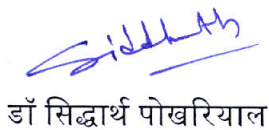 Siddharth
डॉ सिद्धार्थ पोखरियाल